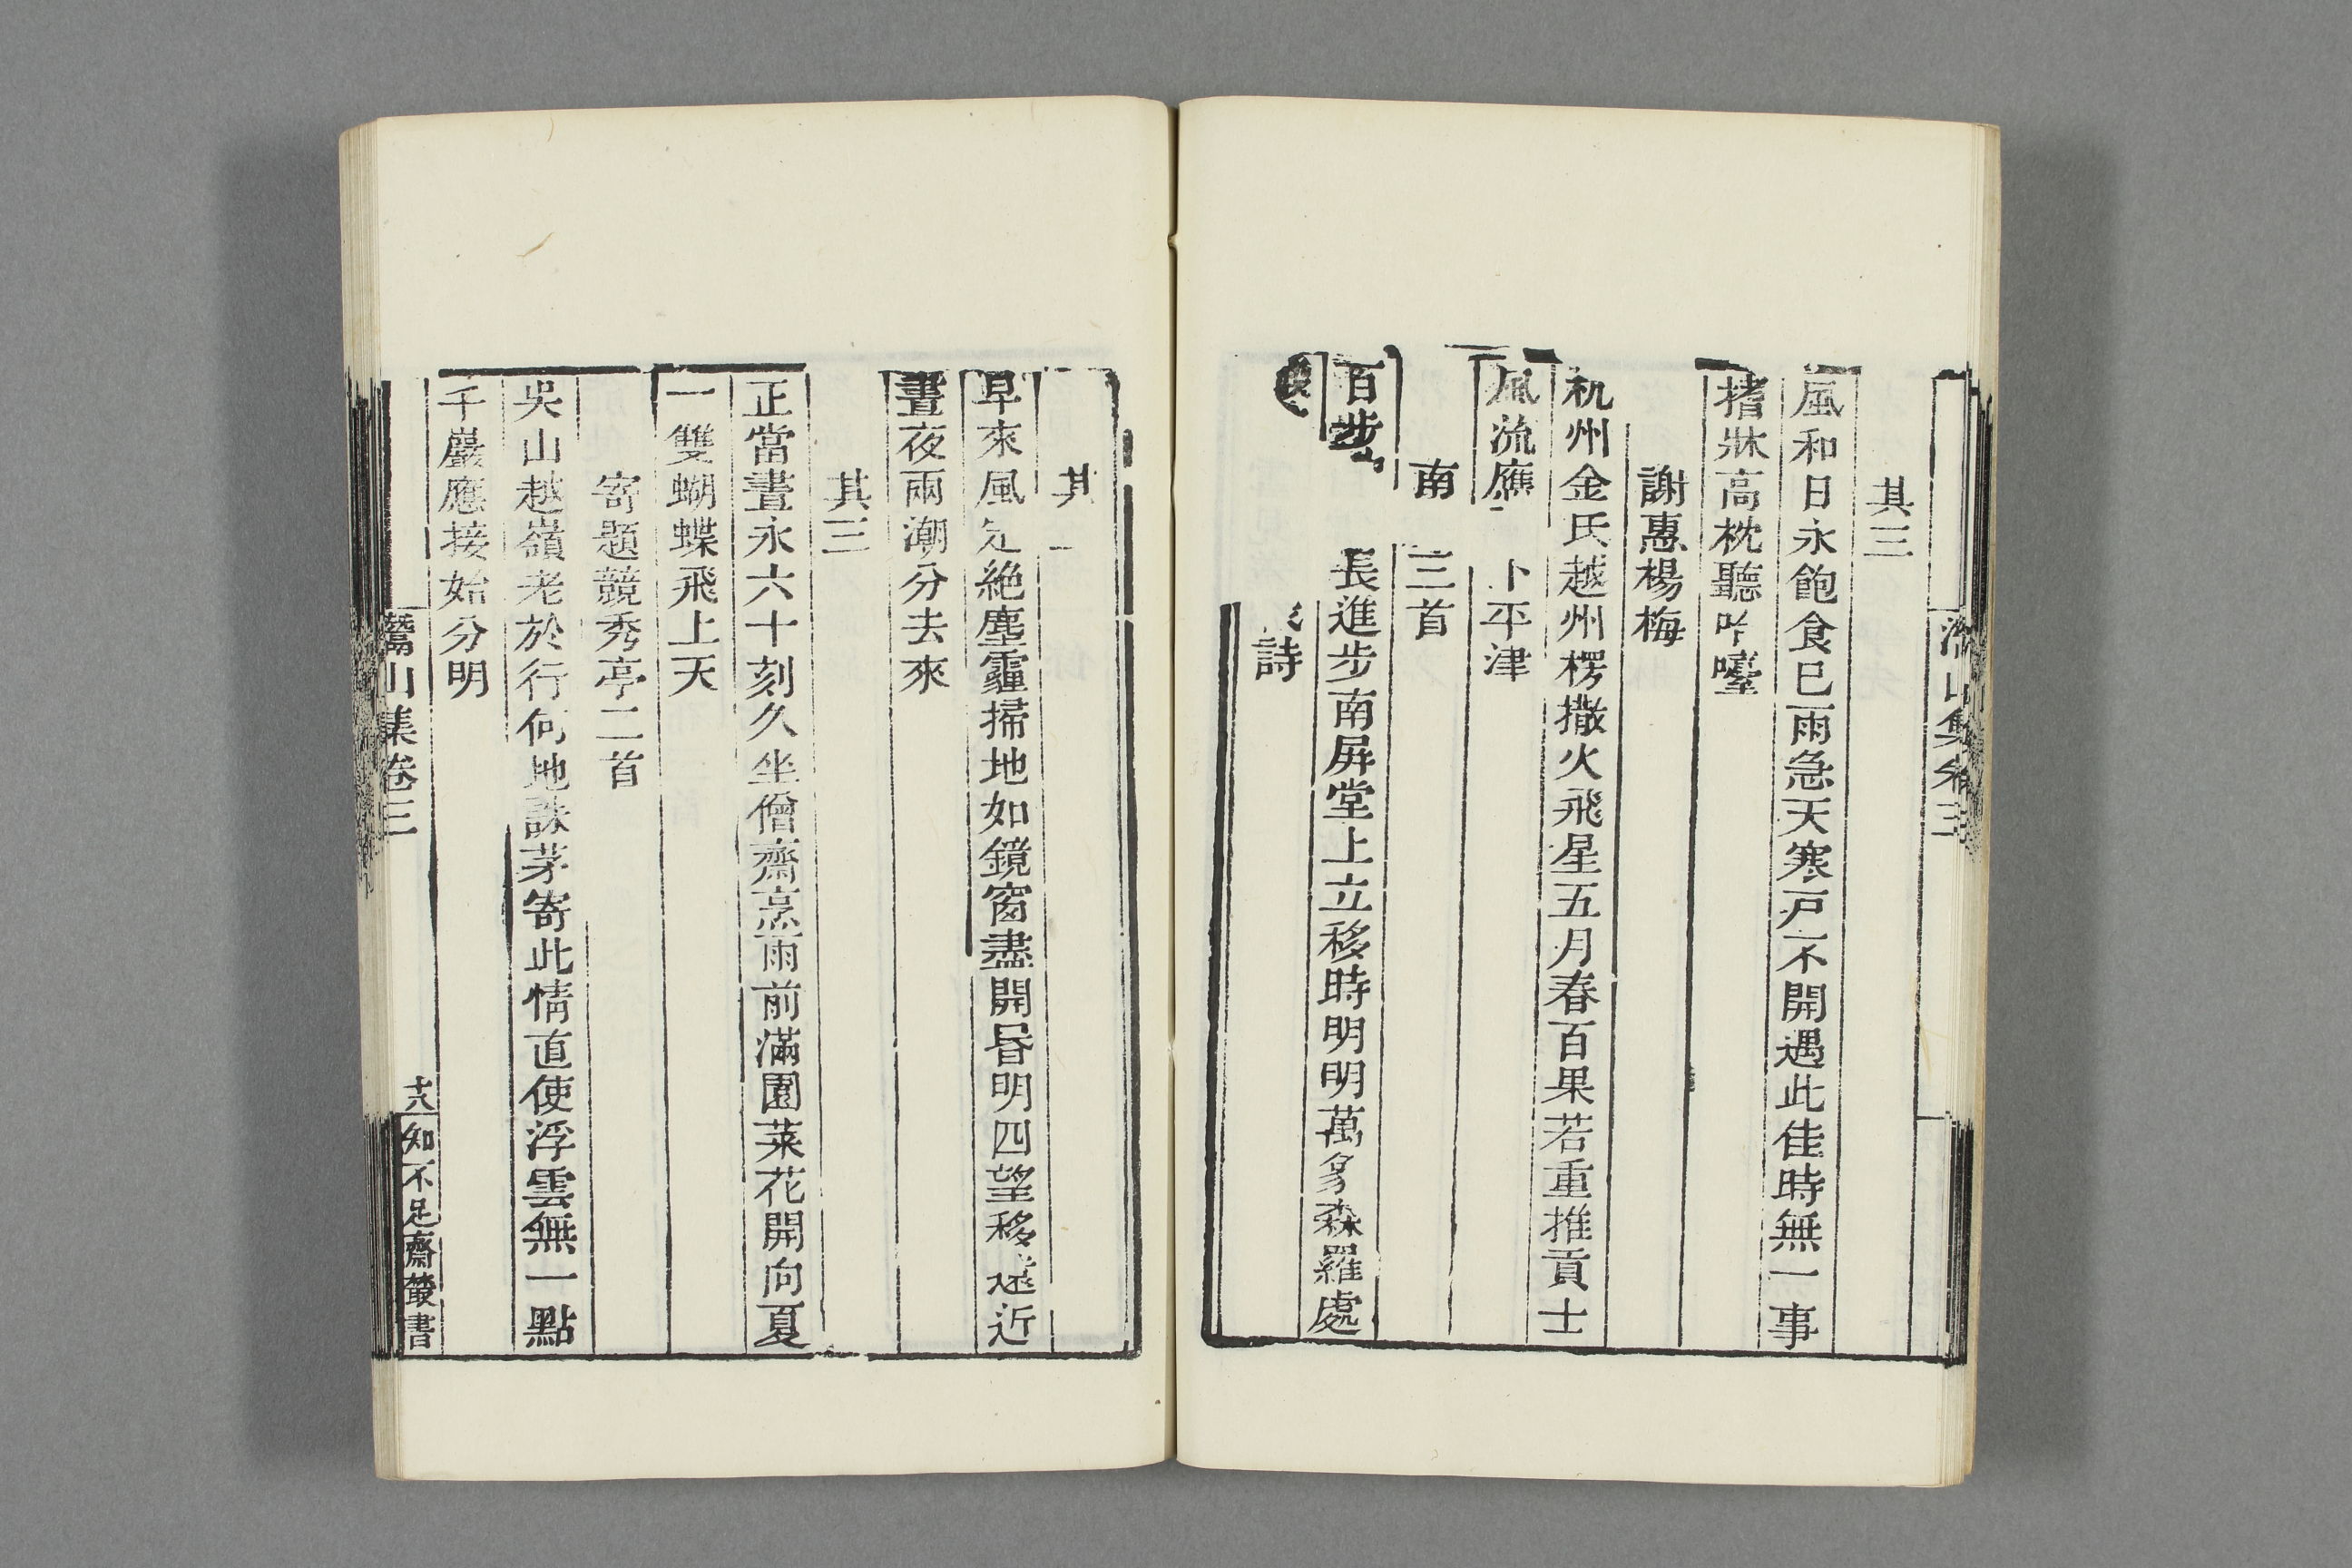 集卷三
其三
風和日永飽食巳雨急天寒戸不開遇此佳時無一事
搘牀高枕聽吟嚎
謝惠楊梅
杭州金氏越州楞撒火飛星五月春百果若重推貢士
風流應 卜平津
南 三首
百步 長進步南屏堂上立移時明明萬象森羅處
詩
其
早來風定絶塵霾掃地如鏡窗盡開昏明四望移遠近
晝夜兩潮分去來
其三
正當晝永六十刻久坐僧齋烹雨前滿園菜花開向夏
一雙蝴蝶飛上天
寄題競秀亭二首
吳山越嶺老於行何地誅茅寄此情直使浮雲無一點
千巖應接始分明
灊山集卷三
十八
知不足齋叢書